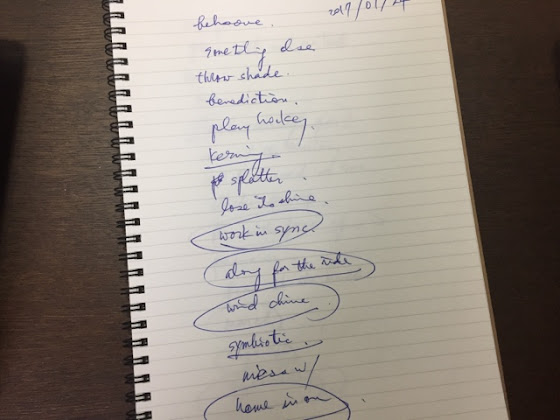 2017/01/24
behoove.
something else
throw shade.
benediction.
play hockey.
kerning.
splatter.
lose its shine.
work in sync.
along for the ride
wind chime.
symbiotic.
home in on